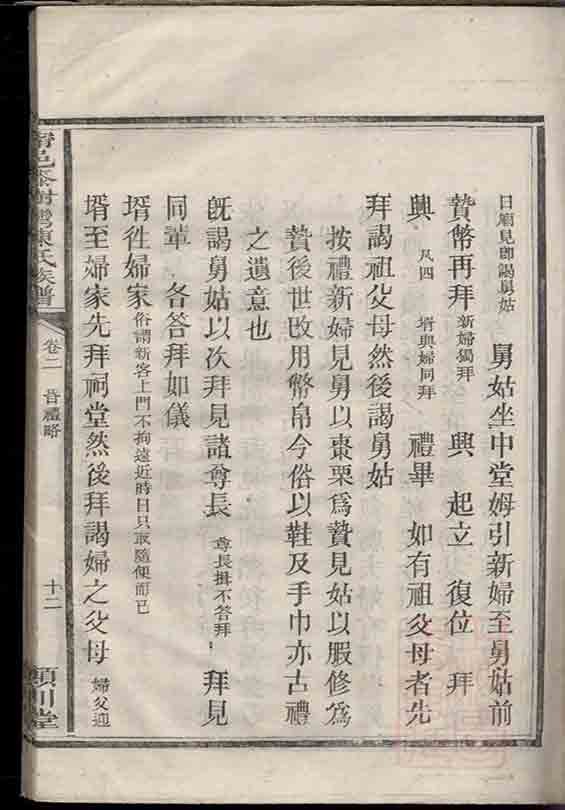 日廟見即謁舅姑 舅姑坐中堂姆引新婦至舅姑前
贄幣再拜 新婦獨拜 興 起立 復位 拜
興 凡四 壻與婦同拜 禮畢 如有祖父母者先
拜謁祖父母然後謁舅姑
按禮新婦見舅以棗栗爲贄見姑以腶修爲
贄後世改用幣帛今俗以鞋及手巾亦古禮
之遺意也
旣謁舅姑以次拜見諸尊長 尊長揖不答拜 拜見
同輩 各答拜如儀
壻徃婦家 俗謂新客上門不拘遠近時日只取隨便而已
壻至婦家先拜祠堂然後拜謁婦之父母 婦父迎
陳氏族譜
卷二 昏禮略
十二
潁川堂